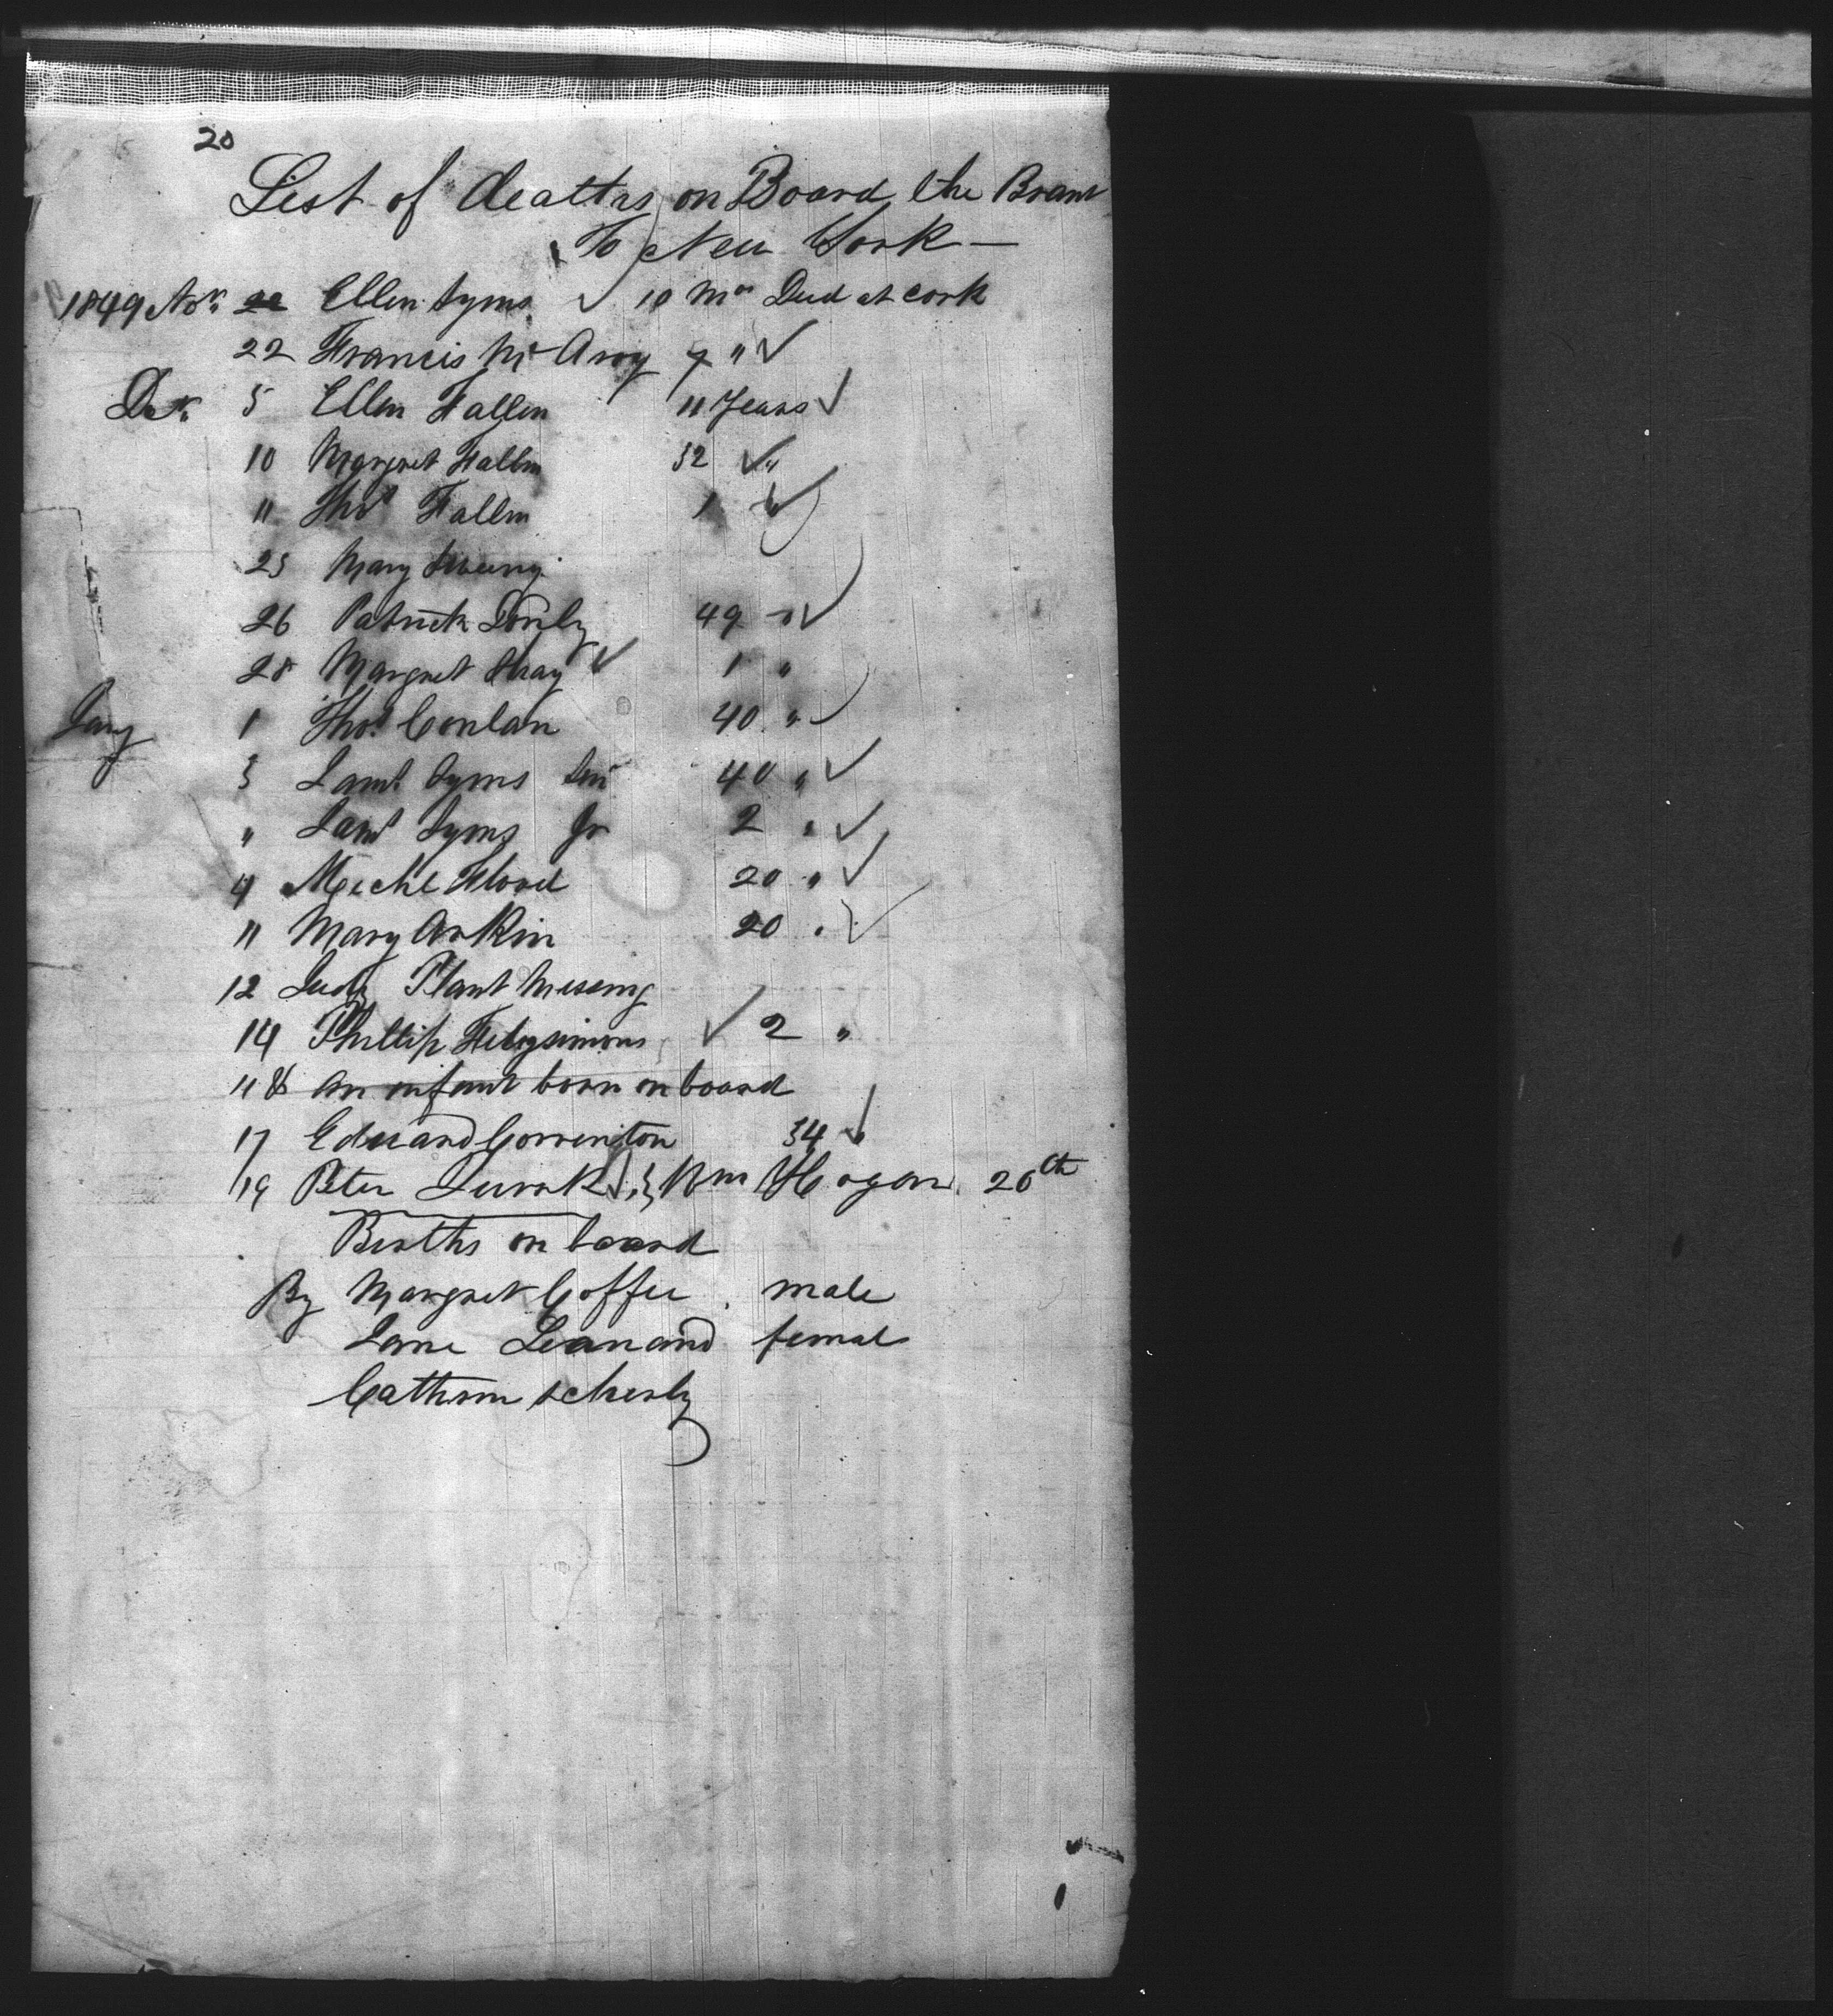 20
List of deaths on Board the Brant
To New York —
1849 Novr 22 Ellen Syms 10 Mos Died at Cork
22 Francis Mc Avoy 7 "
Decr 5 Ellen Fallen 11 Years
10 Margret Fallen 32 "
11 Thos Fallen 1 "
25 Mary
26 Patrick 49 "
28 Margret 1 "
Jany 1 Thos Conlan 40 "
3 Syms Snr 40 "
" Syms Jr 2 "
4 Michl Flood 20 "
11 Mary Arkin 20 "
12 Judy Plant Missing
14 Phillip Fitzsimons 2 "
" & An infant born on board
17 Edward Correnton 34 "
19 Peter Wm Hogan 20th
Births on board
By Margret Coffee male
Jane Leanand femal